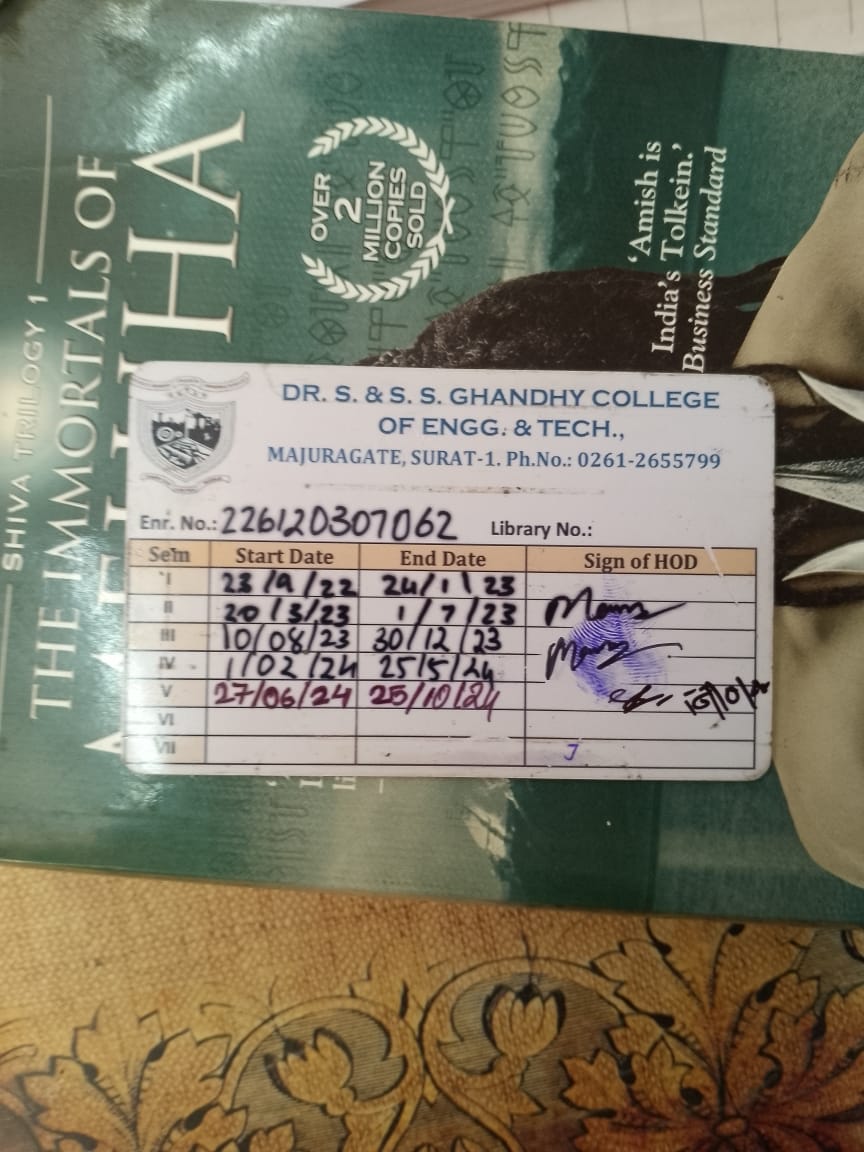 SHIVA TRILOGY 1
THE IMMORTALS OF
OVER
2
MILLION
COPIES
SOLD
‘Amish is
India’s Tolkein.’
Business Standard
DR. S. & S. S. GHANDHY COLLEGE
OF ENGG. & TECH.,
MAJURAGATE, SURAT-1. Ph.No.: 0261-2655799
Enr. No.: 226120307062 Library No.:
Sem Start Date End Date Sign of HOD
I 23/9/22 24/1/23
II 20/3/23 1/7/23
III 10/08/23 30/12/23
IV 1/02/24 25/5/24
V 27/06/24 25/10/24
VI
VII